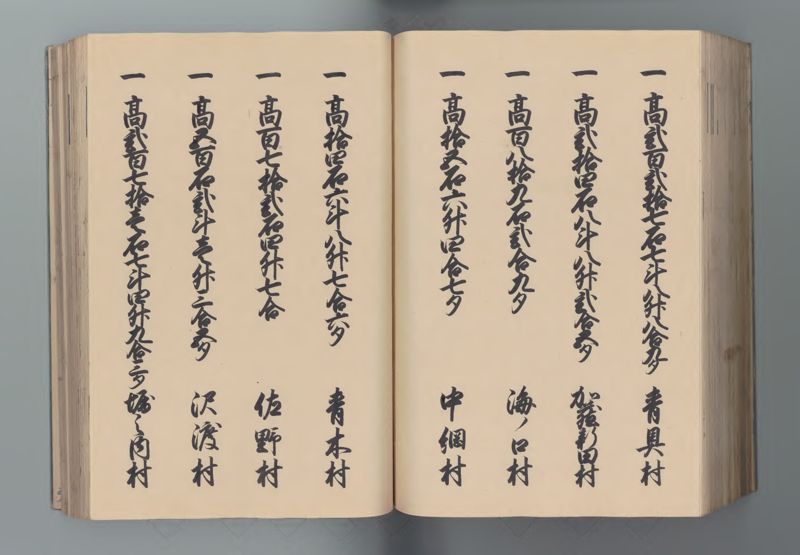 一 高弐百弐拾七石七斗八升八合九夕 青具村
一 高弐拾四石八斗八升弐合五夕 加蔵新田村
一 高百八拾九石弐合九夕 海ノ口村
一 高拾五石六升四合七夕 中綱村
一 高拾四石六斗八升七合六夕 青木村
一 高百七拾弐石四升七合 佐野村
一 高五百石弐斗壱升三合五夕 沢渡村
一 高弐百七拾壱石七斗四升九合三夕 堀之内村